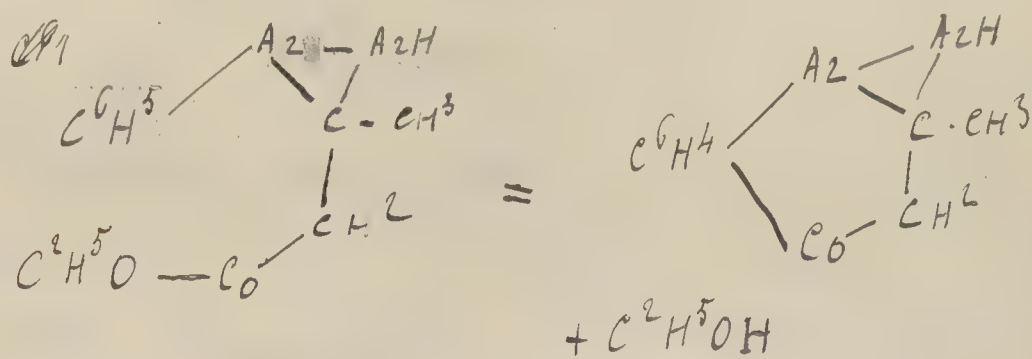 Az — AzH
C⁶H⁵
C - CH³
CH²
C²H⁵O — Co
=
AzH
Az
C⁶H⁴
C . CH³
CH²
Co
+ C²H⁵OH